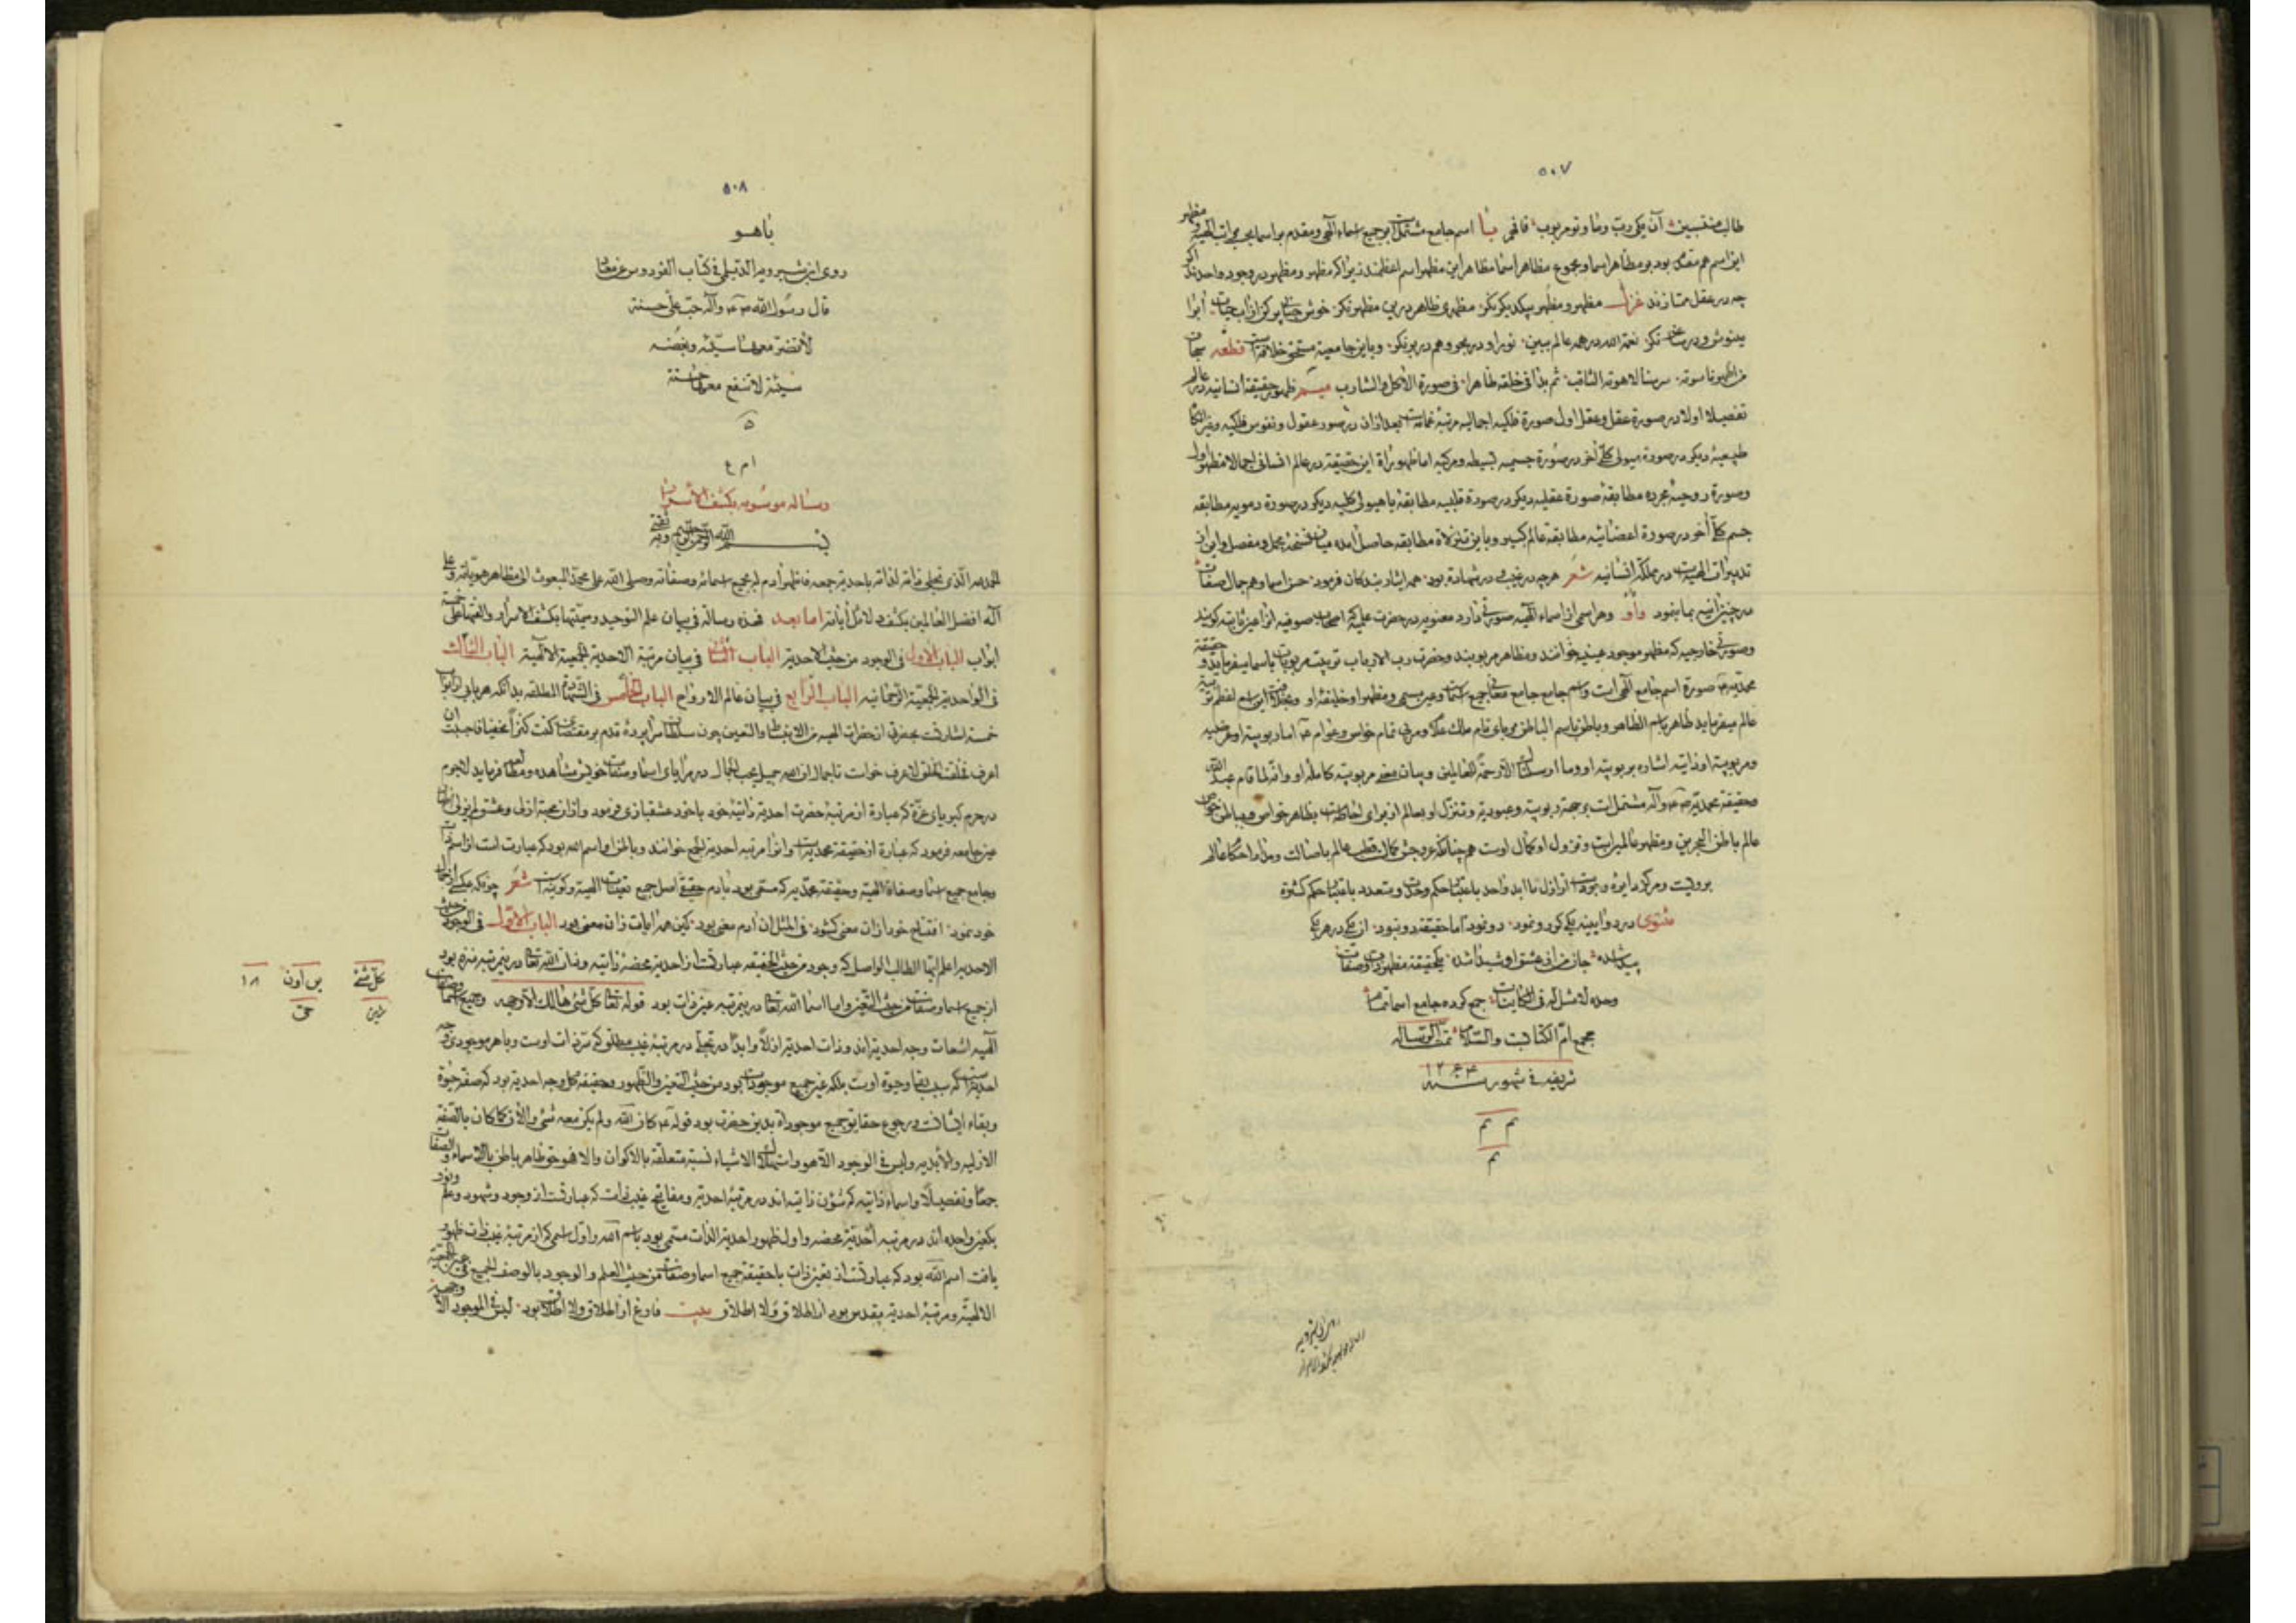 ۵۰۷
طالب منتسبین آن یکی رب وما وتو مربوب فافهم با اسم جامع مشتمل است بر جمیع اسماء الهی ومقدم بر اسما بجمیع مراتب الهیه ومظهر
این اسم هم مقدم بود بر مظاهر اسما ومجموع مظاهر اسما مظاهر این مظهر اسم اعظمند زیرا که مظهر ومظهر در وجود واحدند اگر
چه در عقل ممتازند غزل مظهر ومظهر بیکدیگر نگر مظهری ظاهر درین مظهر نگر خوش حبابی پر کن از آب حیات آبرا
مینوش ودر ساغر نگر نعمة الله در همه عالم ببین نور او در بحر وهم در بر نگر وباین جامعیة مستحق خلافة است قطعه سبحان
من اظهر ناسوته سر سنا لاهوته الثاقب ثم بدا فی خلقه ظاهرا فی صورة الآکل والشارب میم ظهور حقیقة انسانیه در عالم
تفصیلا اولا در صورة عقل وعقل اول صورة کلیه اجمالیه مرتبه عمائست بعد از آن در صور عقول ونفوس فلکیه وغیرها
طبیعیه دیگر در صورة هیولی کلی آخر در صورة جسمیه بسیطه ومرکبه اما ظهورات این حقیقة در عالم انسانی اجمالا مظهر اول
وصورة روحیه مجرده مطابقه صورة عقلیه دیگر در صورة قلبیه مطابقه با هیولی کلیه دیگر در صورة دمویه مطابقه
جسم کل آخر در صورة اعضائیه مطابقه عالم کبیر وباین تنزلاة مطابقه حاصل آمده میان نسخه مجمل ومفصل واین از
تدبیرات الهیه است در مملکة انسانیه شعر هرچه در غیب ودر شهادة بود همه ایثار بندکان فرمود حسن اسما وهم جمال صفات
در چنین آینه بما بنمود واو وهر اسمی از اسماء الهیه صورتی دارد معنویه در حضرت علمیه که اصحاب صوفیه آنرا عین ثابته گویند
وصورتی خارجیه که مظهر موجود عینیه خوانند ومظاهر مربوبند وحضرت رب الارباب تربیت مربوبات باسما میفرماید وحقیقة
محمدیه صورة اسم جامع الهی است واسم جامع جامع معانی جمیع اسما است وعین مسمی ومظهر او خلیفة او
عالم میفرماید ظاهر باسم الظاهر وباطن باسم الباطن
ومربوبیة او ذاتیه اشاره بربوبیته او وما ارسلناک الا رحمة للعالمین وبیان معنی مربوبیة کامله او وانه لما قام عبد الله
وحقیقة محمدیه وآله مشتمل است بر جهة ربوبیة وعبودیة وتنزل او بعالم از برای احاطه است بظاهر خواص وبباطن خواص
عالم باطن البحرین ومظهر عالمین است ونزول او کمال اوست همچنانکه عروجش کمال قطب عالم باصالت ومدار احکام عالم
بروئیت ومرکز دایرهٔ وجودست از ازل تا ابد واحد باعتبار حکم وحدت ومتعدد باعتبار حکم کثرة
مثنوی در دو آیینه یکی گر رو نمود دو نمود اما حقیقة دو نبود از یکی در هر یکی
پیدا شده جان من از عشق او شیدا شده یکحقیقة مظهر ذات وصفات
وحده لا مثل له فی الکاینات جمع کرده جامع اسما تمام
مجمع ام الکتابت والسلام تمت الرساله
شریفه فی شهور سنه ۱۲۴۳
تم تم
تم
۵۰۸
یاهو
روی ابن شیرویه الدیلمی فی کتاب الفردوس عن معاذ
قال رسول الله ص ع وآله حب علی حسنة
لا تضر معها سیئه وبغضه
سیئة لا تنفع معها حسنة
۵
ا م ع
رساله موسومه بکشف الاسرار
بسم الله الرحمن الرحیم وبه ثقتی
الحمد لله الذی تجلی ذاته لذاته باحدیة جمعه فاظهر آدم لجمیع اسمائه وصفاته وصلی الله علی محمد المبعوث الی مظاهر هویاته وعلی
آله افضل العالمین بکشف دلائل آیاته اما بعد فهذه رسالة فی بیان علم التوحید وسمیتها بکشف الاسرار والفتها علی خمسة
ابواب الباب الاول فی الوجود من حیث الاحدیة الباب الثانی فی بیان مرتبة الاحدیة الجمعیة الالهیة الباب الثالث
فی الواحدیة الجمعیة الرحمانیه الباب الرابع فی بیان عالم الارواح الباب الخامس فی الشهادة المطلقه بدانکه هر بابی از ابواب
خمسة اشارتست بحضرتی از حضرات الهیه من الانبساط والتعین چون سلطان سراپردهٔ قدم بر مقتضای کنت کنزاً مخفیا فاحببت ان
اعرف فخلقت الخلق لاعرف خواست تا جمال ان الله جمیل یحب الجمال در مرایای اسما وصفات خویش مشاهده ومطالعه فرماید لاجرم
در حرم کبریای عزة که عبارة از مرتبهٔ حضرت احدیة ذاتیهٔ خود باخود عشقبازی فرمود واز آن محبة ازلی وعشق لم یزلی
عین جامعه فرمود که عبارة از حقیقة محمدیه است وآنرا مرتبه احدیة الجمع خوانند وباطن او اسم الله بود که عبارت است از اسم ذات
وجامع جمیع اسما وصفاة الهیة وحقیقة محمدیه که مسمی بود بآدم حقیقی اصل جمیع تعینات الهیة وکونیه است شعر چونکه عکسی از جمال
خود نمود افتتاح خود از آن معنی کشود فی المثل آن آدم معنی بود کین همه آیات زان معنی بود الباب الاول فی الوجود من حیث
الاحدیه اعلم ایها الطالب الواصل که وجود من حیث الحقیقه عبارتست از احدیة محضهٔ ذاتیه وذات الله تعا درین مرتبه منزه بود
از جمیع اسما وصفات من حیث التعین واما اسما الله تعا درین مرتبه عین ذات بود قوله تعا کل شیء هالک الا وجهه وجمیع اسما وصفات
الهیه اشعات وجه احدیة اند وذات احدیة ازلاً وابداً در تجلی در مرتبهٔ غیب مطلق که سر ذات اوست وباهر موجودی وجه
احدیة است که سبب بقا وحیوة اوست بلکه عین جمیع موجودات بود من حیث التعین والظهور وحقیقة کل وجه احدیة بود که صفة حیوة
وبقاء ایشانست ورجوع حقایق جمیع موجودات بدین حضرت بود قوله ع کان الله ولم یکن معه شیء والآن کما کان بالصفة
الازلیه والابدیه ولیس فی الوجود الا هو واستهلاک الاشیاء نسبة متعلقه بالاکوان والا فهو حق ظاهر باطن بالاسماء والصفات
جمعا وتفصیلا واسماء ذاتیه که شؤن ذاتیه اند در مرتبهٔ احدیة ومفاتیح غیب ذات که عبارتست از وجود وشهود وعلم ونور
بکعین واحده اند در مرتبه احدیة محضه واول ظهور احدیة الذات مسمی بود باسم الله واول اسمی که از مرتبهٔ غیب ذات ظهور
یافت اسم الله بود که عبارتست از تعین ذات باحقیقة جمیع اسما وصفات من حیث العلم والوجود بالوصف الجمیع فی عین الجمعیة
الالهیة ومرتبهٔ احدیة مقدس بود از اطلاق ولا اطلاق بیت فارغ از اطلاق ولا اطلاق بود لیس فی الموجود الا
کل شیء
س اون
۱۸
حق